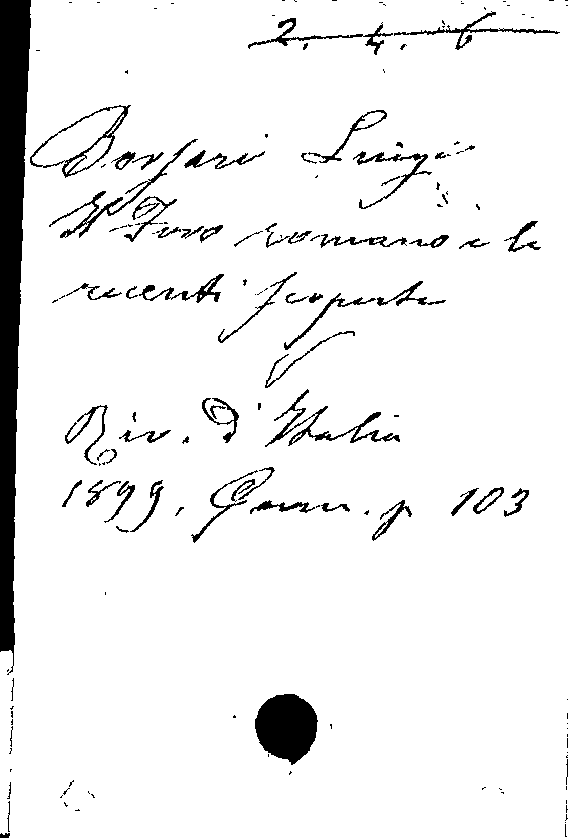 2. 4. 6
Borsari Luigi
Il Foro romano e le
recenti scoperte
Riv. d'Italia
1899, Genn. p 103